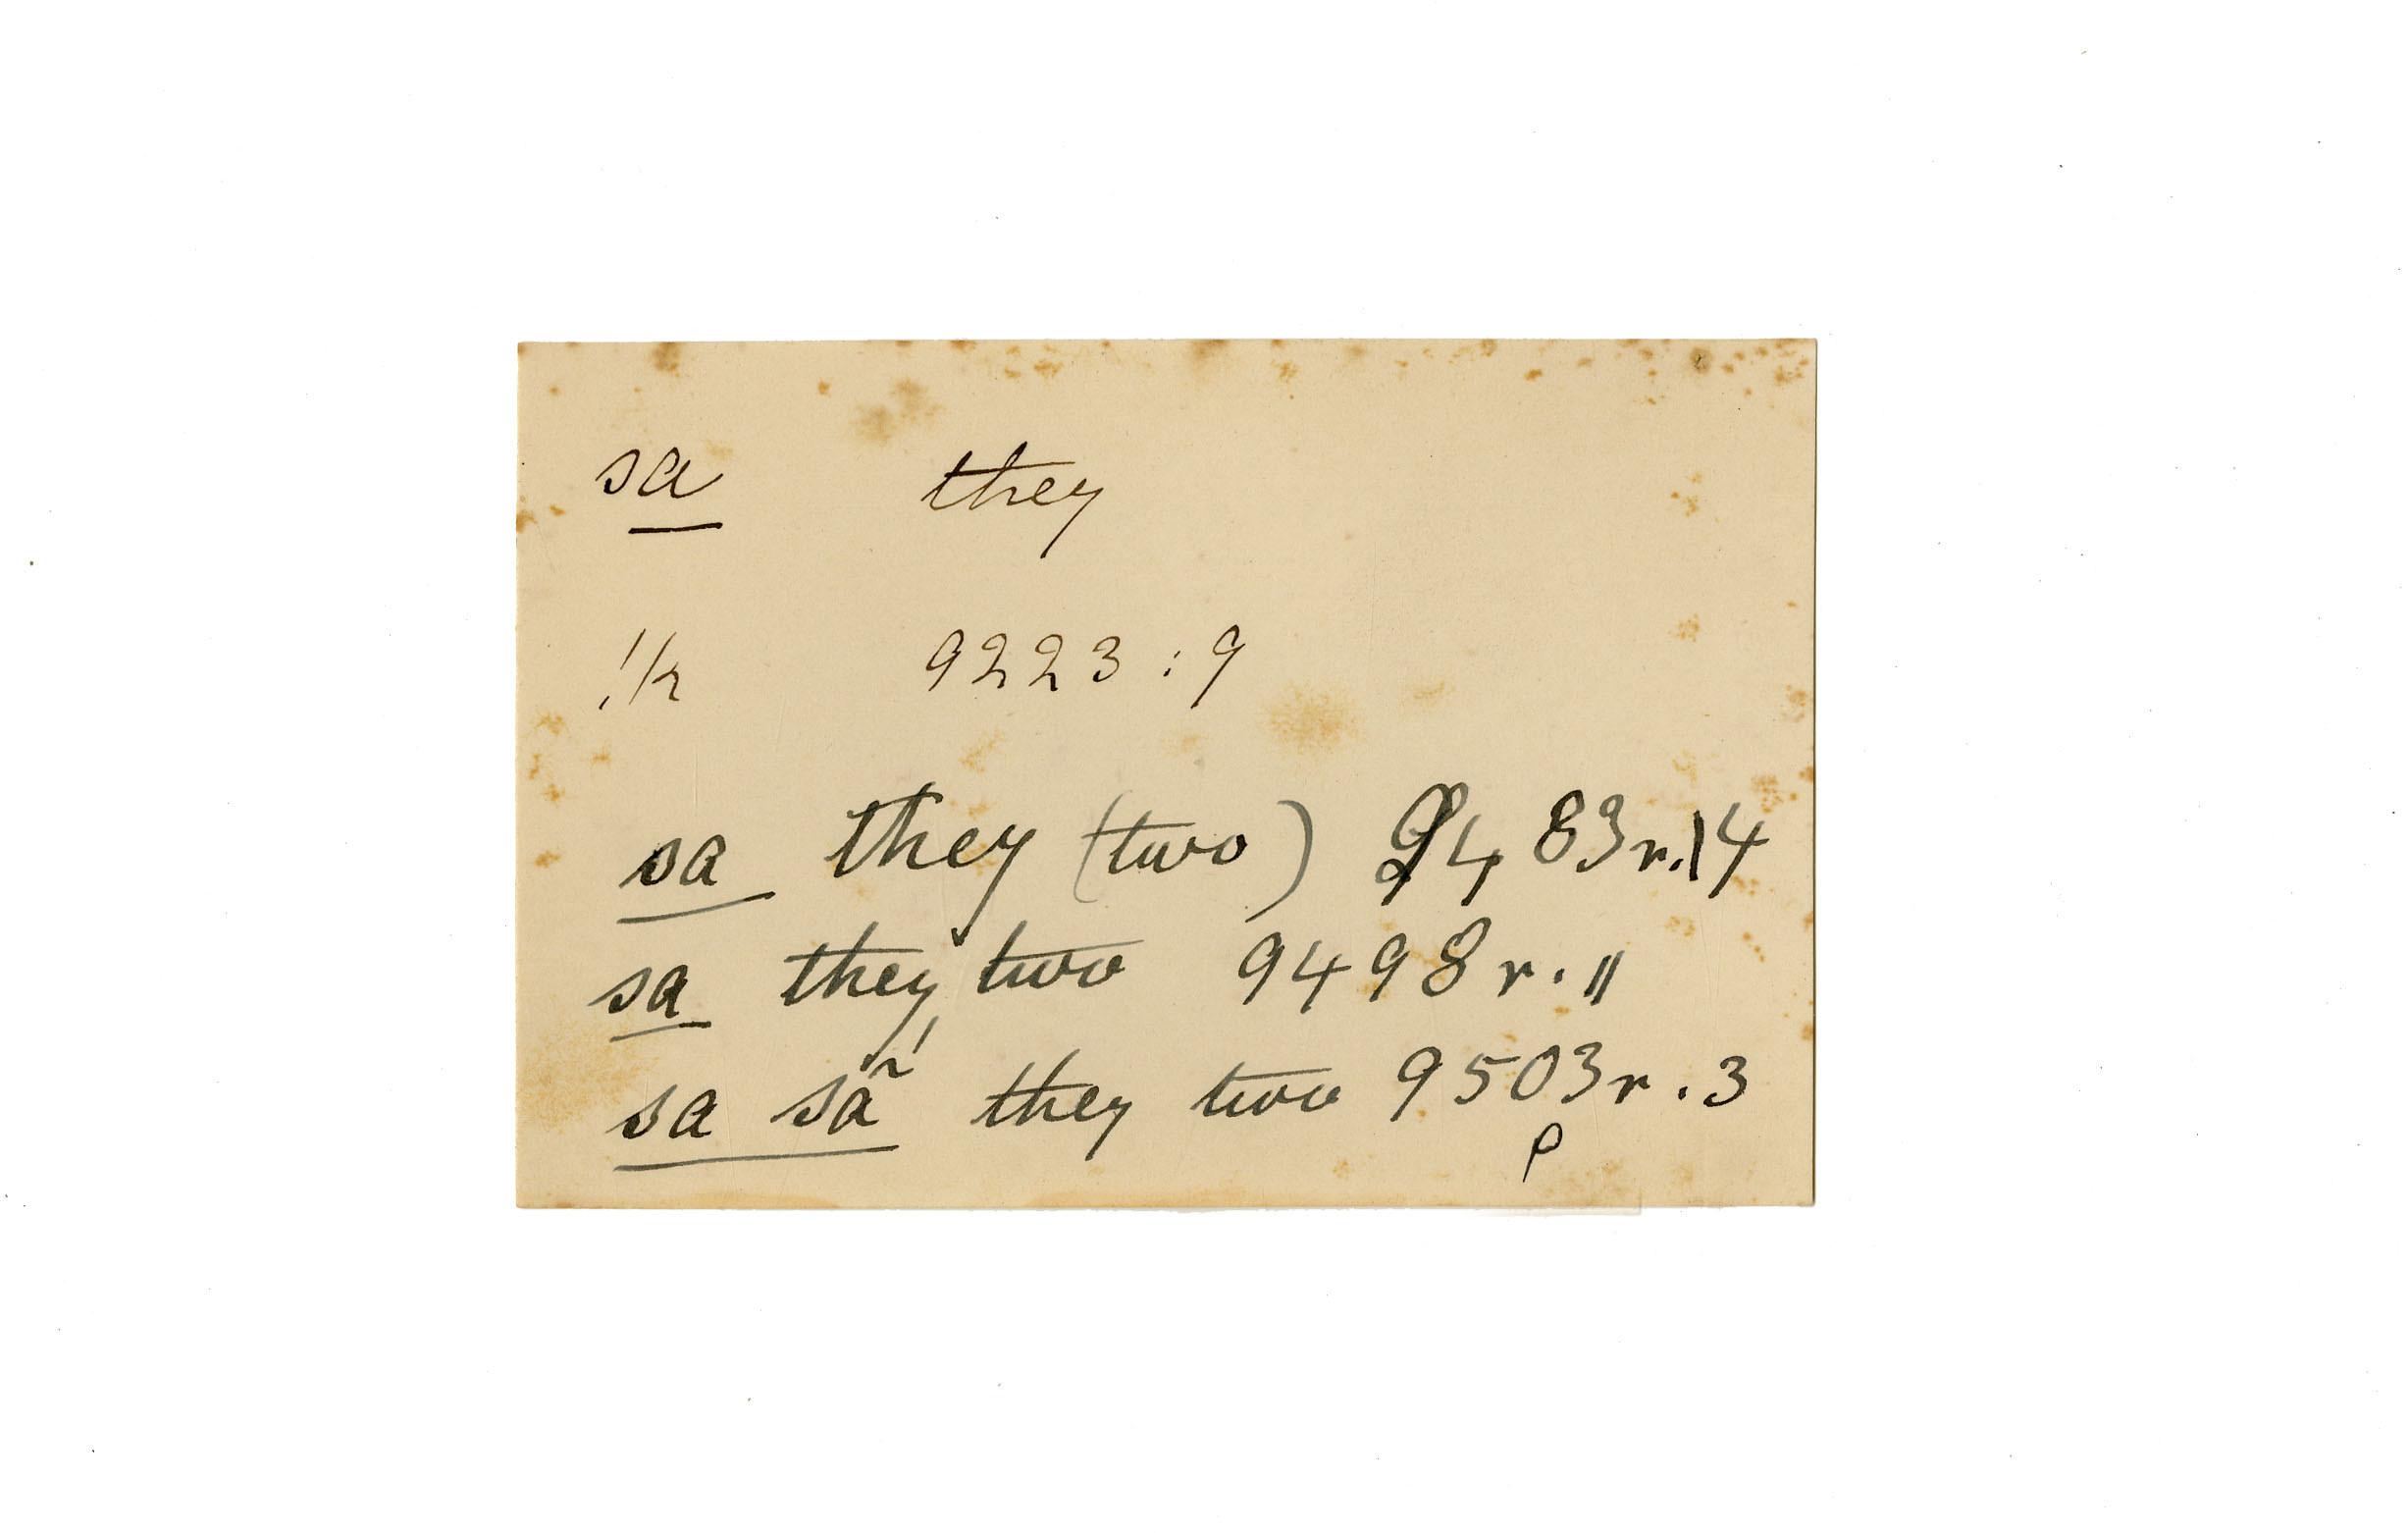 sa they
!k 9223 : 9
sa they (two) 9483 r. 14
sa they two 9498 r. 11
sa sã́ they two 9503 r. 3
P